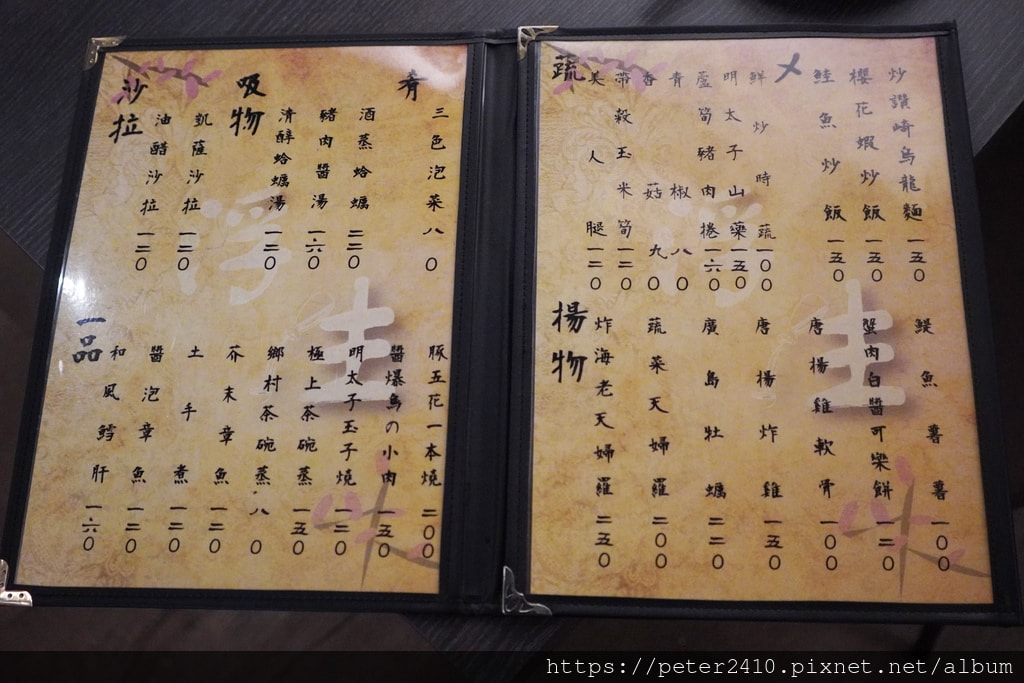 肴
三色泡菜 八〇
酒蒸蛤蠣 二二〇
豬肉醬湯 一六〇
清醇蛤蠣湯 一二〇
吸物
凱薩沙拉 一二〇
油醋沙拉 一二〇
沙拉
豚五花一本燒 二〇〇
醬爆鳥の小肉 一五〇
明太子玉子燒 一二〇
極上茶碗蒸 一五〇
鄉村茶碗蒸 八〇
芥末章魚 一二〇
土手煮 一二〇
醬泡章魚 一二〇
和風鱈肝 一六〇
一品
炒讚崎烏龍麵 一五〇
櫻花蝦炒飯 一五〇
鮭魚炒飯 一五〇
〆
鮮炒時蔬 一〇〇
明太子山藥 一五〇
蘆筍豬肉捲 一六〇
青椒 八〇
香菇 九〇
帶殼玉米筍 一二〇
美人腿 一二〇
蔬
鯷魚薯薯 一〇〇
蟹肉白醬可樂餅 一二〇
唐揚雞軟骨 一〇〇
唐揚炸雞 一五〇
廣島牡蠣 二二〇
蔬菜天婦羅 二〇〇
炸海老天婦羅 二五〇
揚物
浮生
浮生
https://peter2410.pixnet.net/album